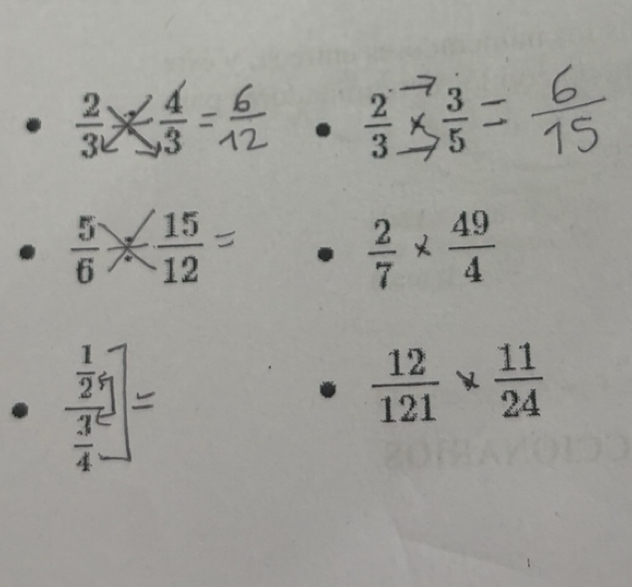 • 2/3 ÷ 4/3 = 6/12 • 2/3 × 3/5 = 6/15
• 5/6 ÷ 15/12 = • 2/7 × 49/4
• (1/2)/(3/4) = • 12/121 × 11/24